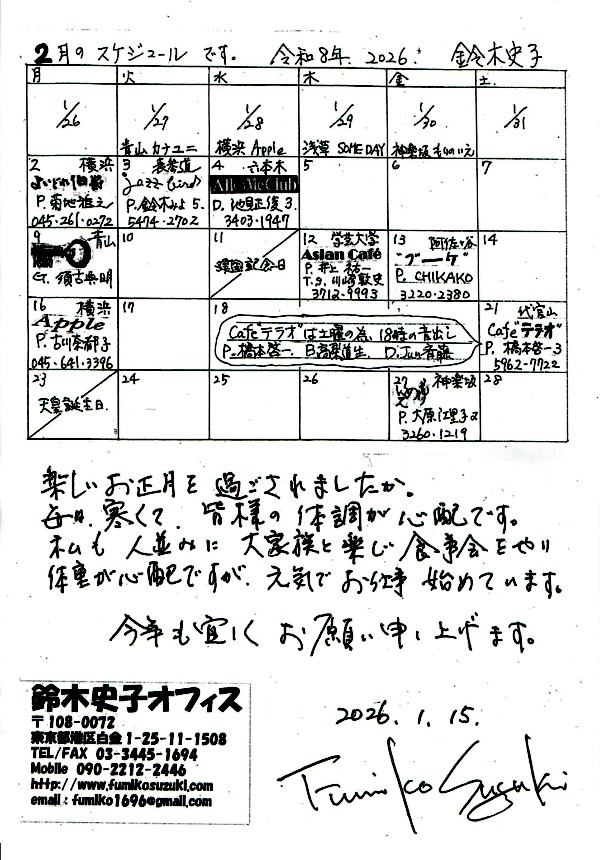 2月のスケジュール です。 令和8年. 2026. 鈴木史子
月 火 水 木 金 土
1/26 1/27 1/28 1/29 1/30 1/31
青山 カナユニ 横浜 Apple 浅草 SOME DAY 神楽坂 もりのいえ
2 横浜
P. 菊地雅之
045・261・0272
3 表参道
jazz bird
P. 鈴木みよ 5.
5474・2702
4 六本木
All of Me Club
D. 池見正俊 3.
3403・1947
5
6
7
9 青山
G. 須古典明
10
11
建国記念日
12 学芸大学
Asian Café
P. 井上 祐一
T.S. 川崎敦史
3712・9993
13 阿佐ヶ谷
P. CHIKAKO
3220・2380
14
16 横浜
Apple
P. 古川奈都子
045・641・3396
17
18
Cafe "テラオ" は土曜の為、18時の音出し
P. 橋本啓一. D. Jun斉藤
21 代官山
Cafe "テラオ"
P. 橋本啓一 3
5962-7722
23
天皇誕生日.
24
25
26
27 神楽坂
P. 大原江里子
3260・1219
28
楽しいお正月を過ごされましたか。
毎日、寒くて、皆様の体調が心配です。
私も人並みに大家族と楽しい食事会をやり
体重が心配ですが、元気でお仕事始めています。
今年も宜しくお願い申し上げます。
鈴木史子オフィス
〒108-0072
東京都港区白金 1-25-11-1508
TEL/FAX 03-3445-1694
Mobile 090-2212-2446
http://www.fumikosuzuki.com
email : fumiko1696@gmail.com
2026. 1. 15.
Fumiko Suzuki